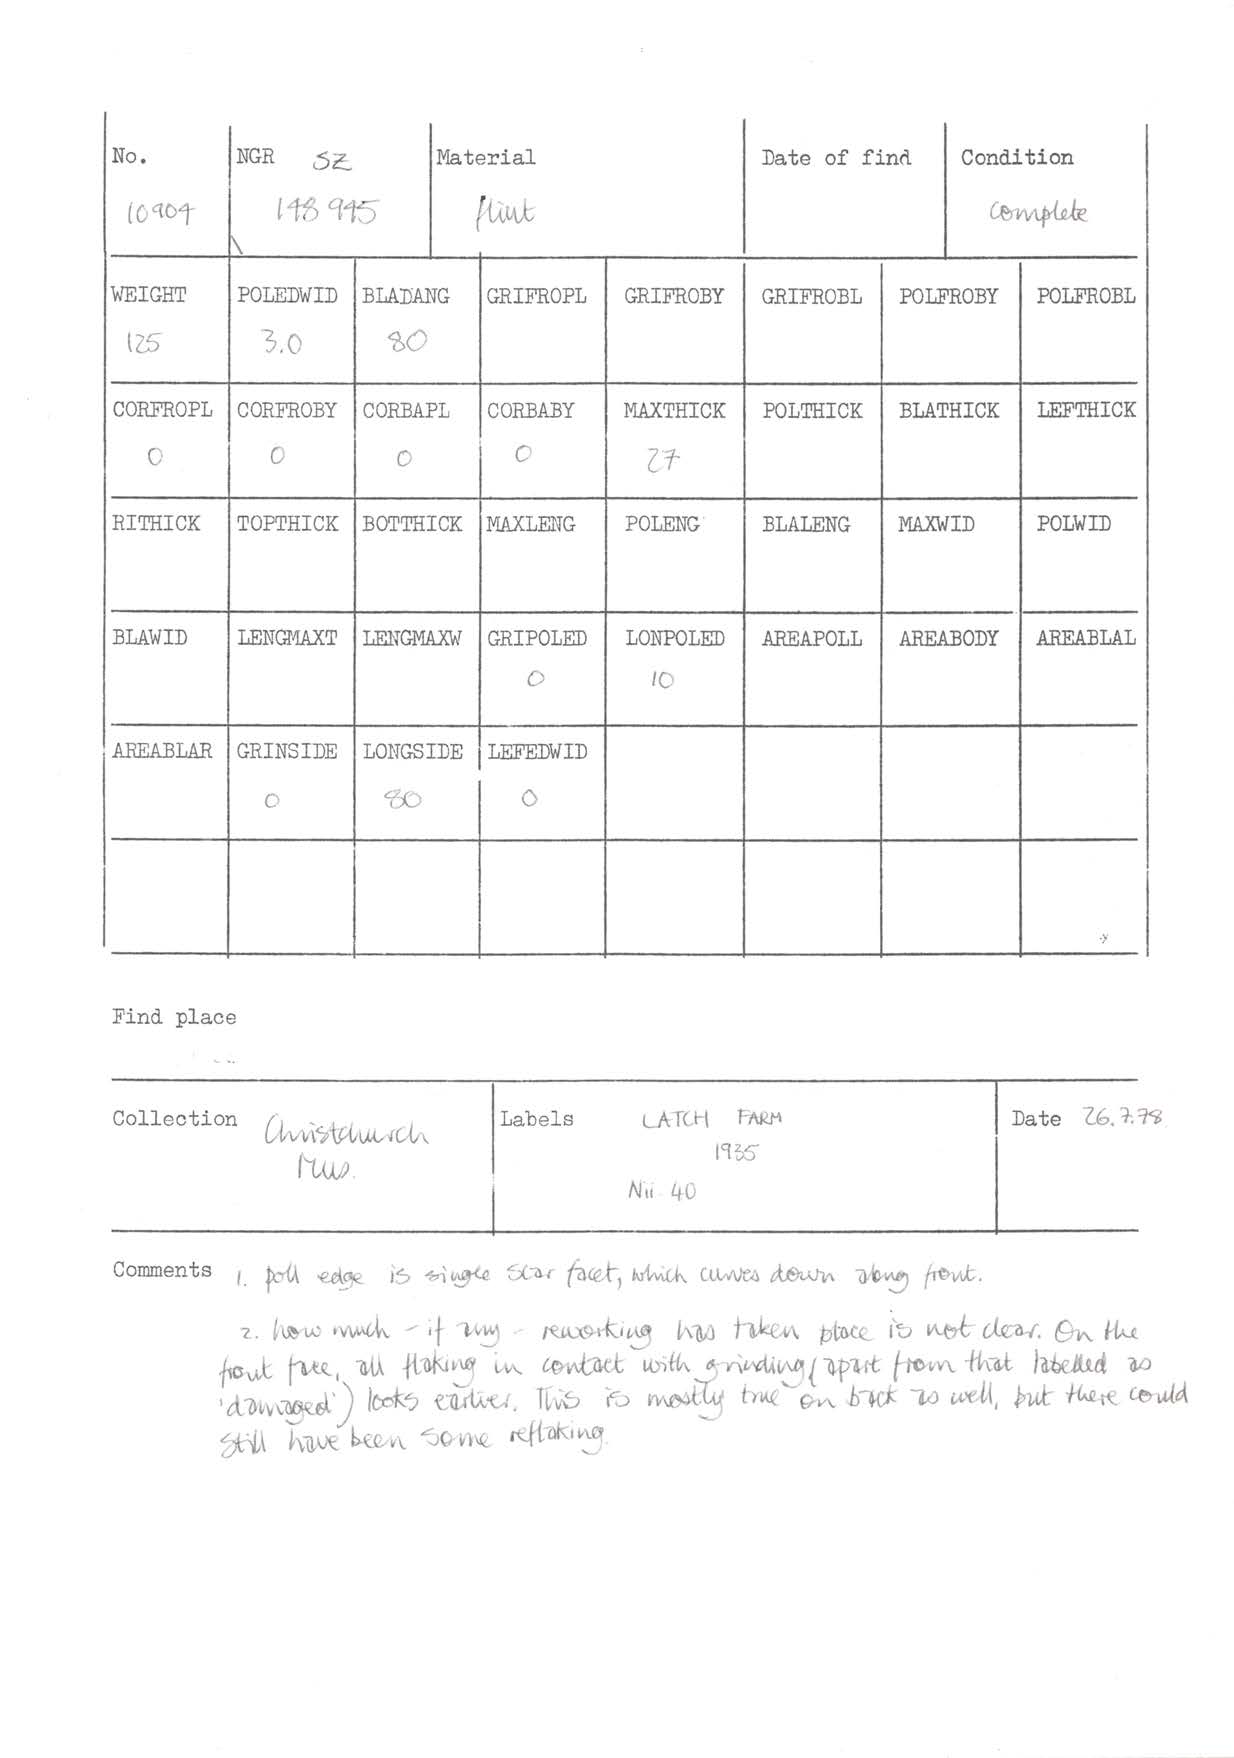 No. NGR SZ Material Date of find Condition
10904 148 945 flint complete
WEIGHT POLEDWID BLADANG GRIFROPL GRIFROBY GRIFROBL POLFROBY POLFROBL
125 3.0 80
CORFROPL CORFROBY CORBAPL CORBABY MAXTHICK POLTHICK BLATHICK LEFTHICK
0 0 0 0 27
RITHICK TOPTHICK BOTTHICK MAXLENG POLENG BLALENG MAXWID POLWID
BLAWID LENGMAXT LENGMAXW GRIPOLED LONPOLED AREAPOLL AREABODY AREABLAL
0 10
AREABLAR GRINSIDE LONGSIDE LEFEDWID
0 80 0
Find place
Collection Christchurch Labels LATCH FARM Date 26.7.78
Mus. 1935
Nii 40
Comments 1. poll edge is single scar facet, which curves down along front.
2. how much - if any - reworking has taken place is not clear. On the
front face, all flaking in contact with grinding (apart from that labelled as
'damaged') looks earlier. This is mostly true on back as well, but there could
still have been some reflaking.